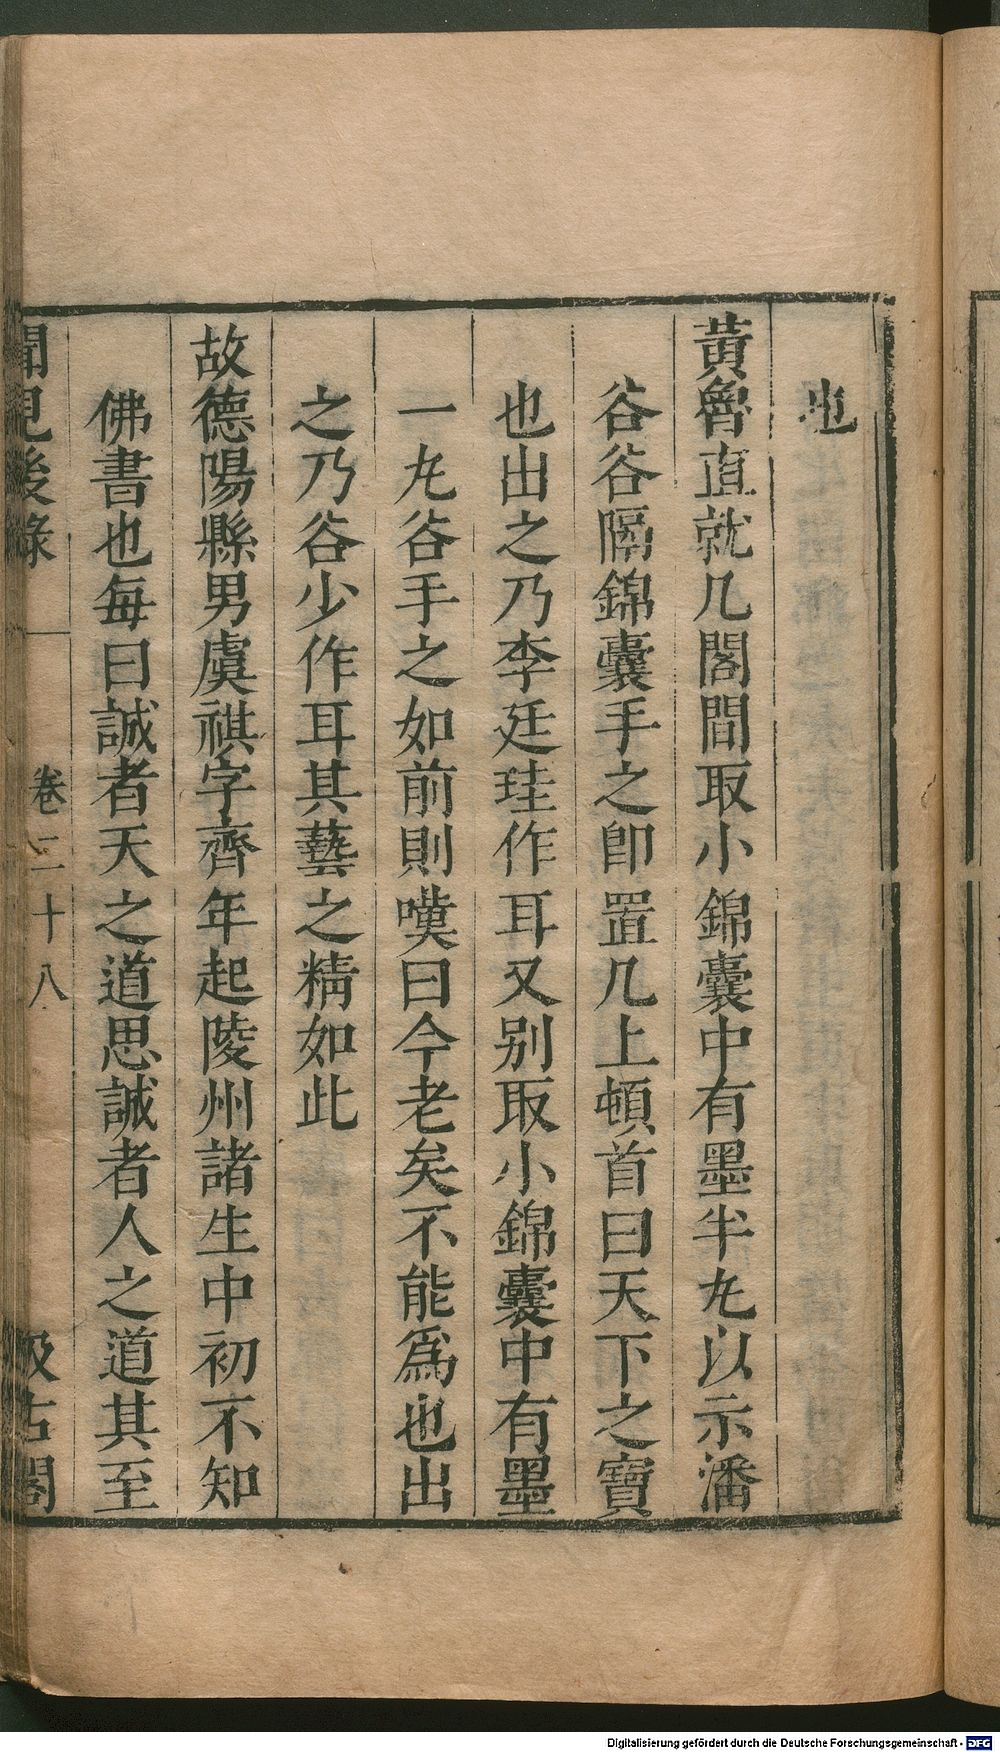 也
黃魯直就几閣間取小錦囊中有墨半丸以示潘
谷谷隔錦囊手之卽置几上頓首曰天下之寶
也出之乃李廷珪作耳又別取小錦囊中有墨
一丸谷手之如前則嘆曰今老矣不能爲也出
之乃谷少作耳其藝之精如此
故德陽縣男虞祺字齊年起陵州諸生中初不知
佛書也每曰誠者天之道思誠者人之道其至
聞見後錄 卷二十八 汲古閣
Digitalisierung gefördert durch die Deutsche Forschungsgemeinschaft - DFG